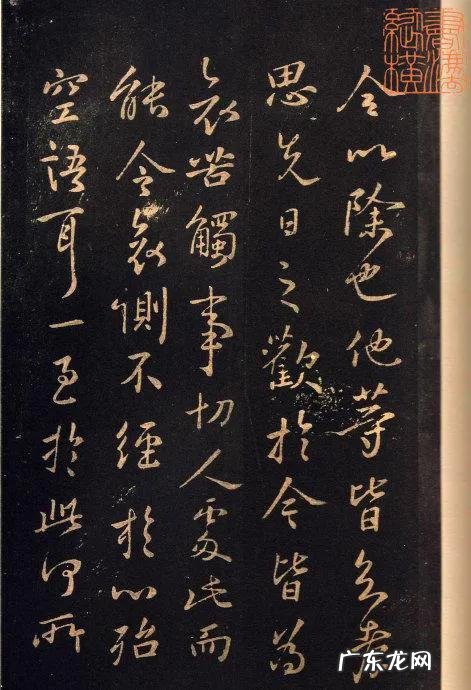 今以除也他等皆
思先日之歡於今皆為
哀苦觸事切人處此而
能令哀惻不經於心殆
空語耳一至於此何所
广东龙网